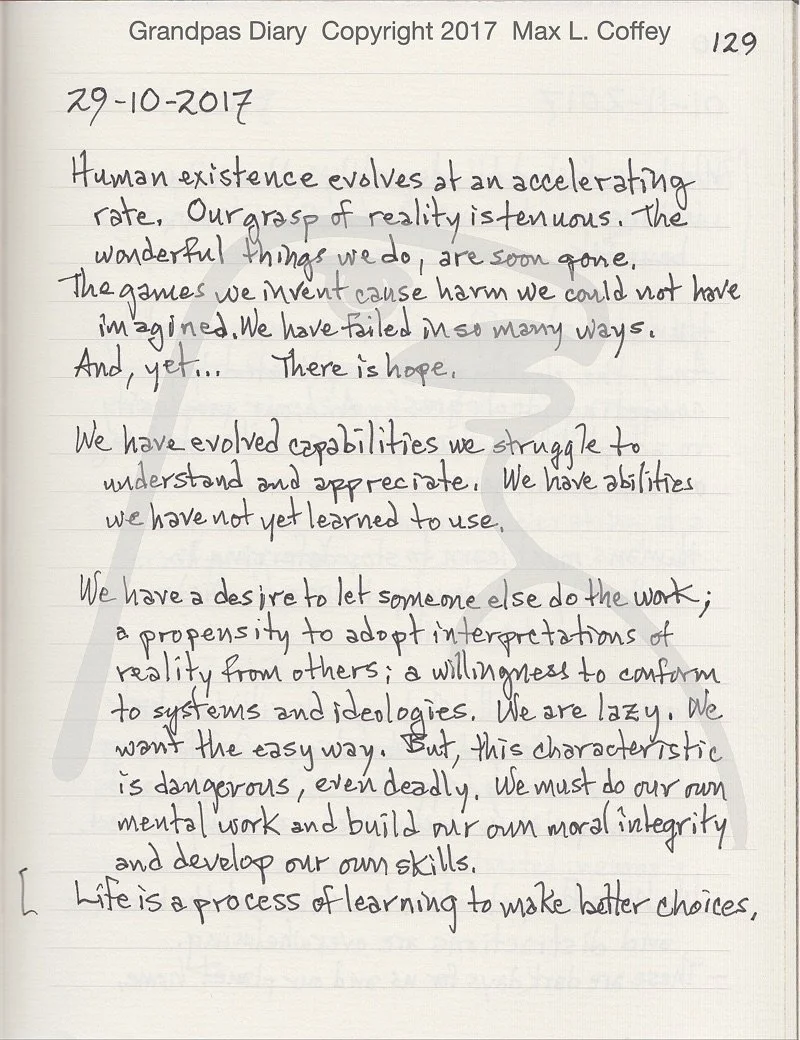 Grandpas Diary Copyright 2017 Max L. Coffey
129
29-10-2017
Human existence evolves at an accelerating
rate. Our grasp of reality is tenuous. The
wonderful things we do, are soon gone.
The games we invent cause harm we could not have
imagined. We have failed in so many ways.
And, yet... There is hope.
We have evolved capabilities we struggle to
understand and appreciate. We have abilities
we have not yet learned to use.
We have a desire to let someone else do the work;
a propensity to adopt interpretations of
reality from others; a willingness to conform
to systems and ideologies. We are lazy. We
want the easy way. But, this characteristic
is dangerous, even deadly. We must do our own
mental work and build our own moral integrity
and develop our own skills.
[ Life is a process of learning to make better choices,